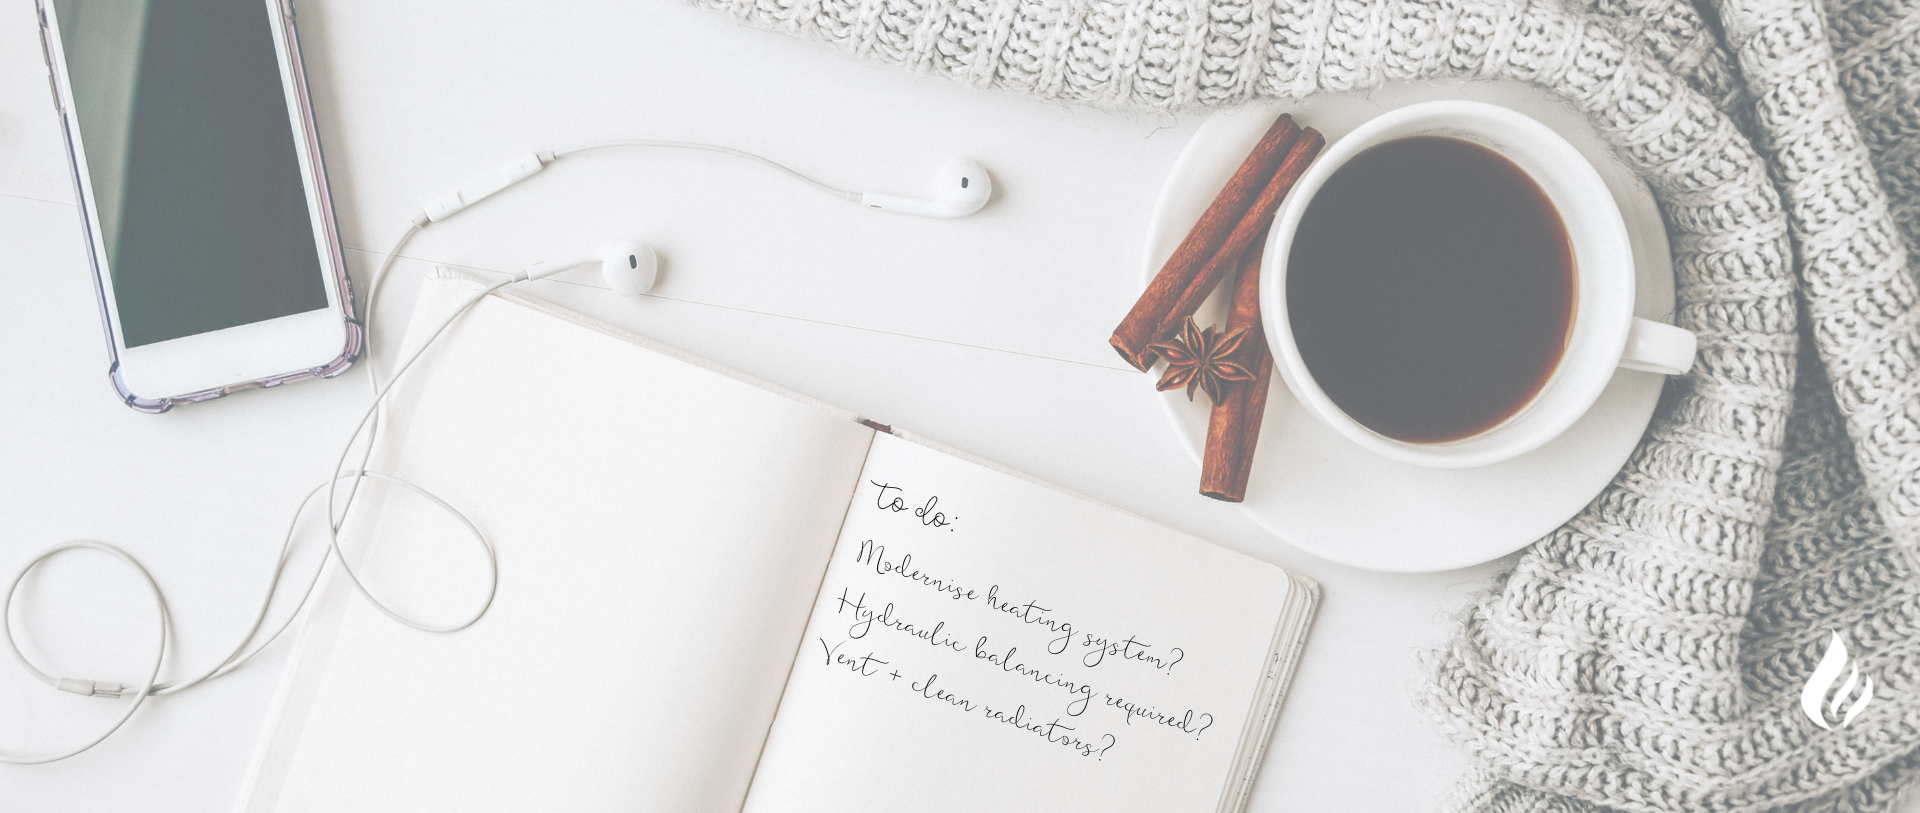 to do:
Modernise heating system?
Hydraulic balancing required?
Vent + clean radiators?